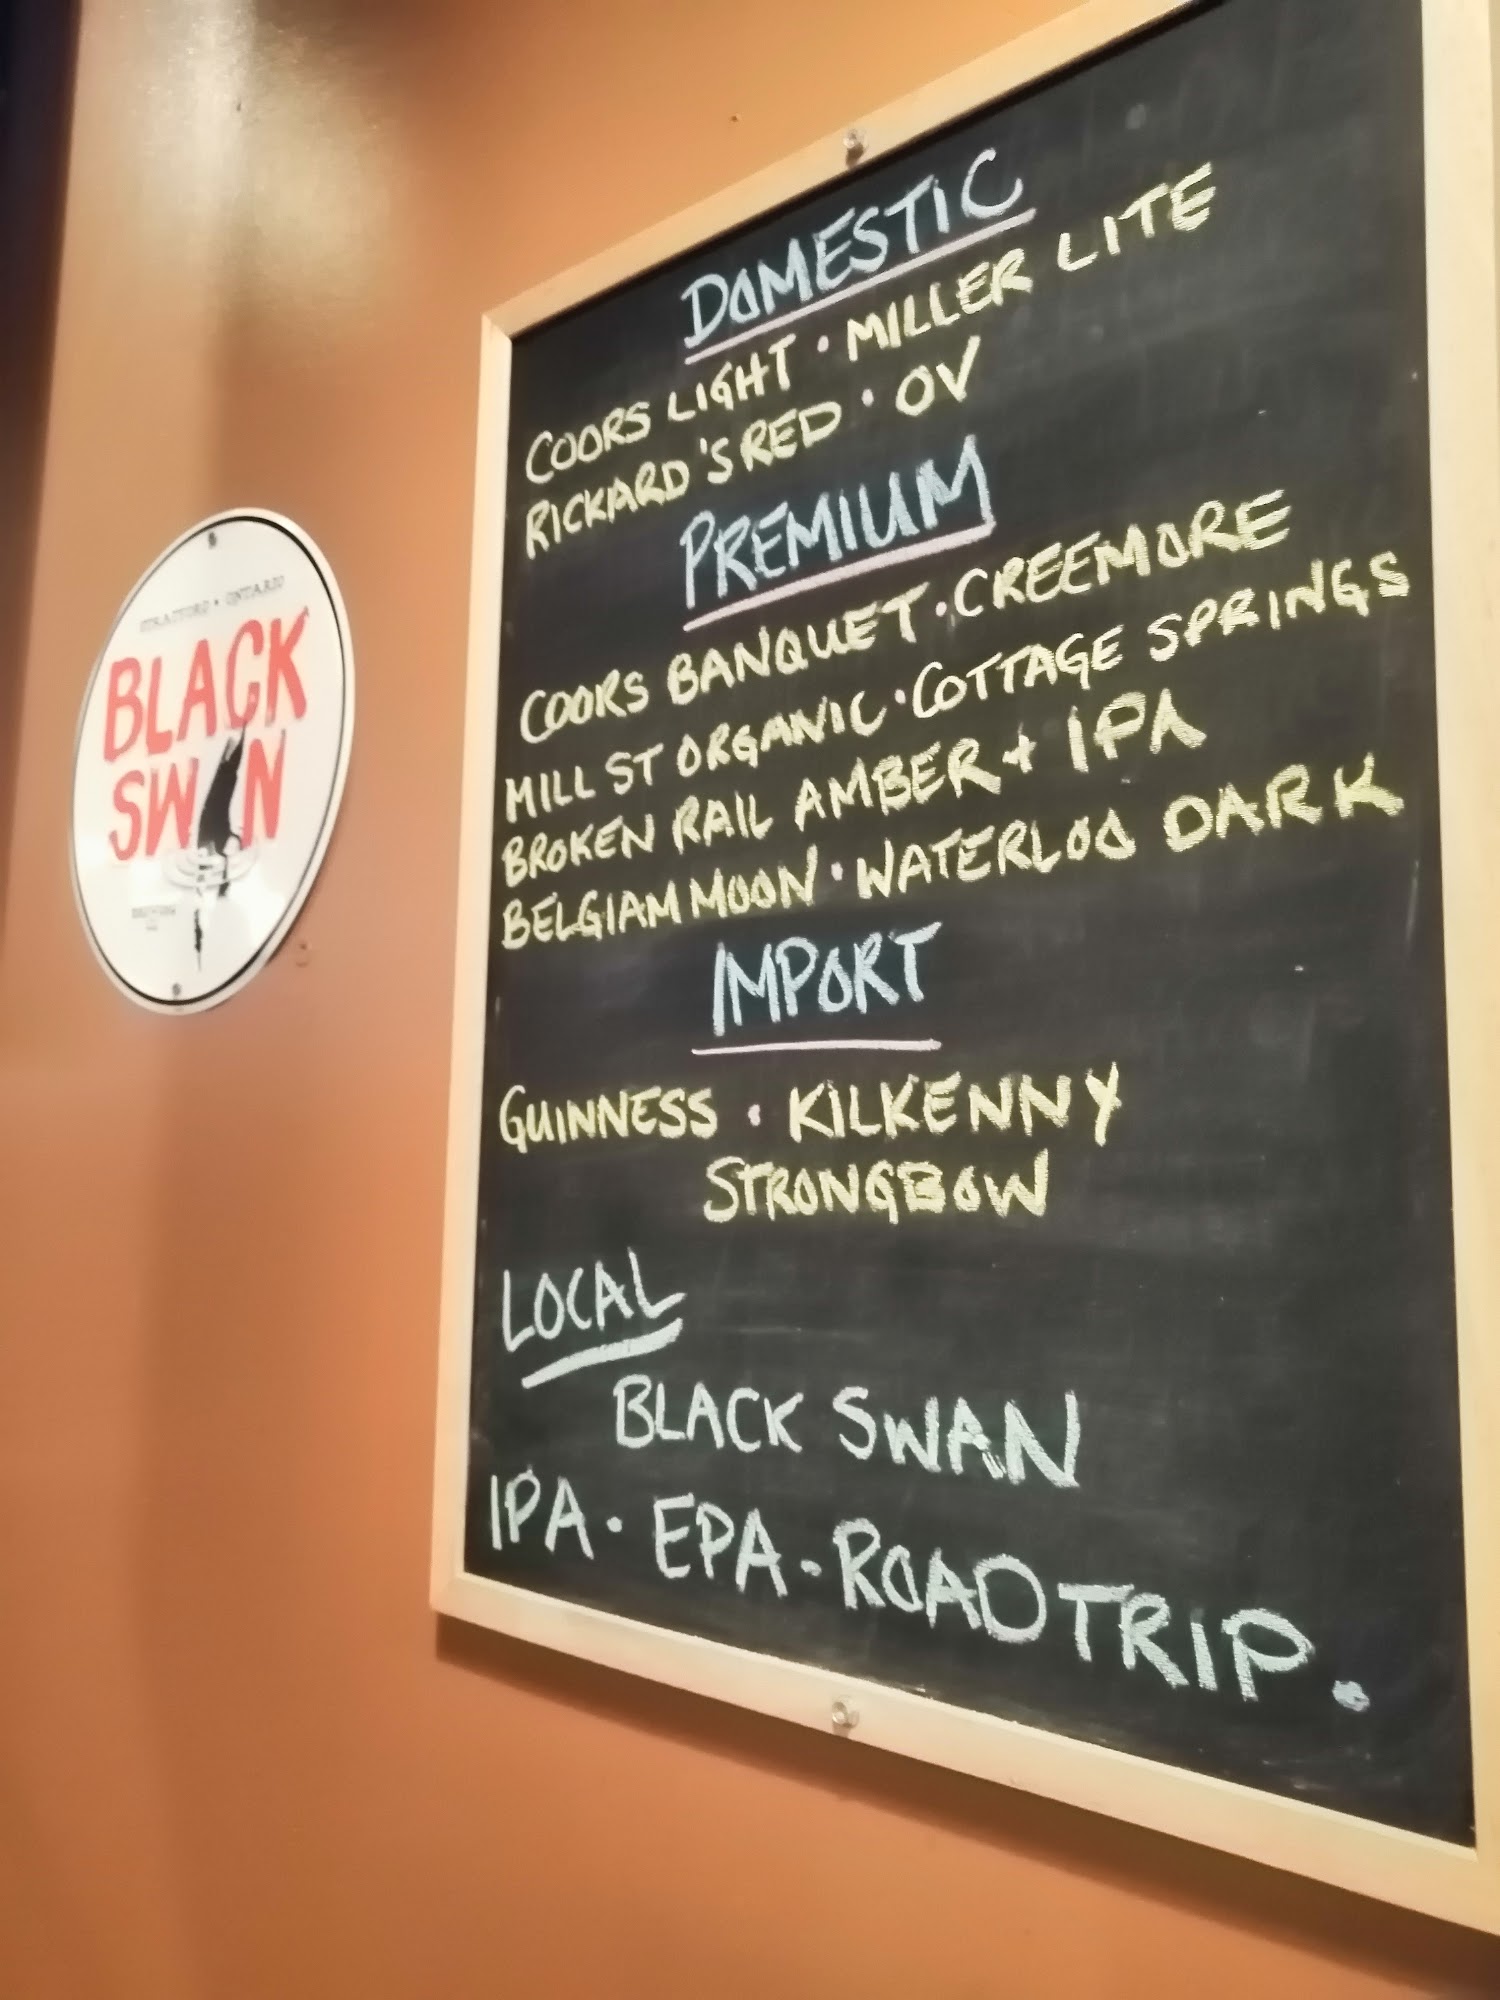 STRATFORD • ONTARIO
BLACK
SWAN
DOMESTIC
COORS LIGHT • MILLER LITE
RICKARD'S RED • OV
PREMIUM
COORS BANQUET • CREEMORE
MILL ST ORGANIC • COTTAGE SPRINGS
BROKEN RAIL AMBER + IPA
BELGIAM MOON • WATERLOO DARK
IMPORT
GUINNESS • KILKENNY
STRONGBOW
LOCAL
BLACK SWAN
IPA • EPA - ROADTRIP.